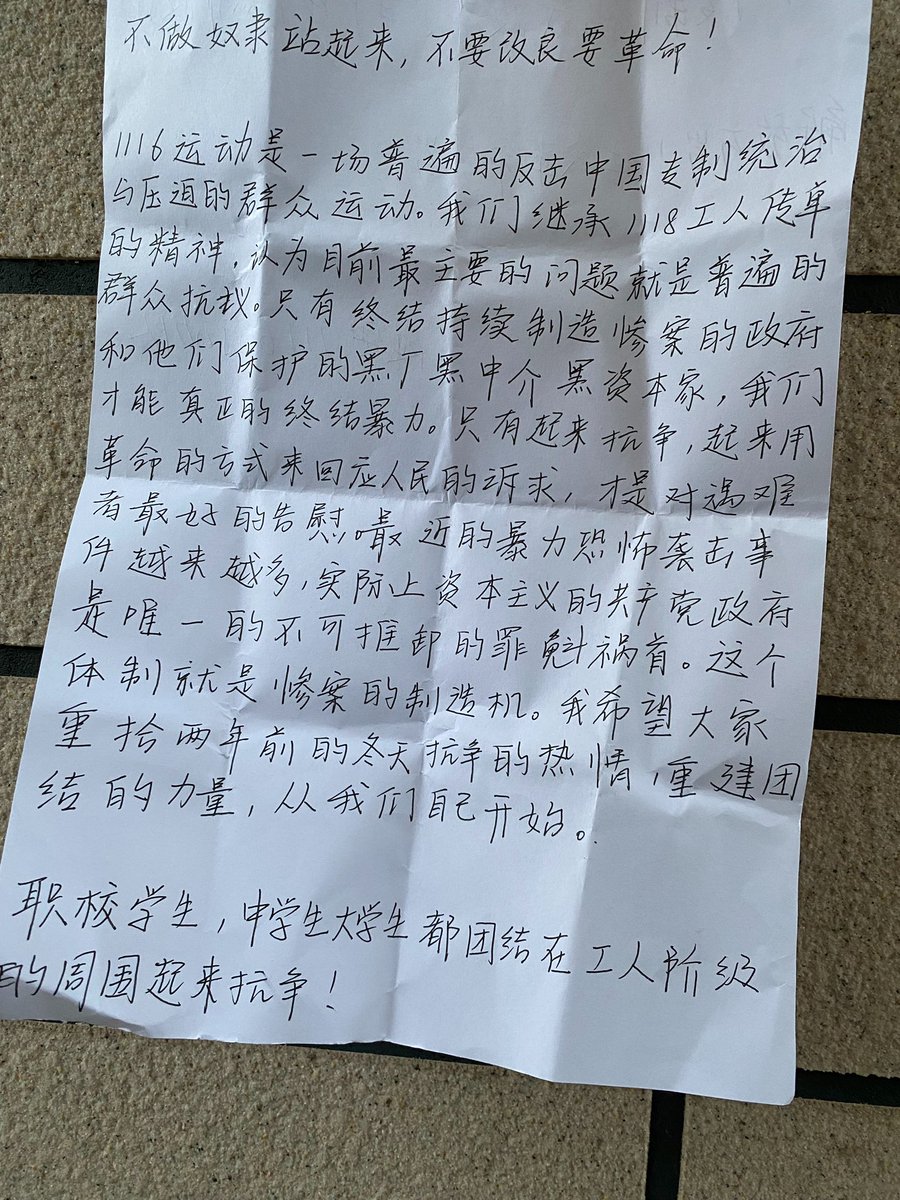 不做奴隶站起来，不要改良要革命！
1116运动是一场普遍的反击中国专制统治
与压迫的群众运动。我们继承1118工人传单
的精神，认为目前最主要的问题就是普遍的
群众抗议。只有终结持续制造惨案的政府
和他们保护的黑厂黑中介黑资本家，我们
才能真正的终结暴力。只有起来抗争，起来用
革命的方式来回应人民的诉求，才是对遇难
者最好的告慰。最近的暴力恐怖袭击事
件越来越多，实际上资本主义的共产党政府
是唯一的不可推卸的罪魁祸首。这个
体制就是惨案的制造机。我希望大家
重拾两年前的冬天抗争的热情，重建团
结的力量，从我们自己开始。
职校学生，中学生大学生都团结在工人阶级
的周围起来抗争！